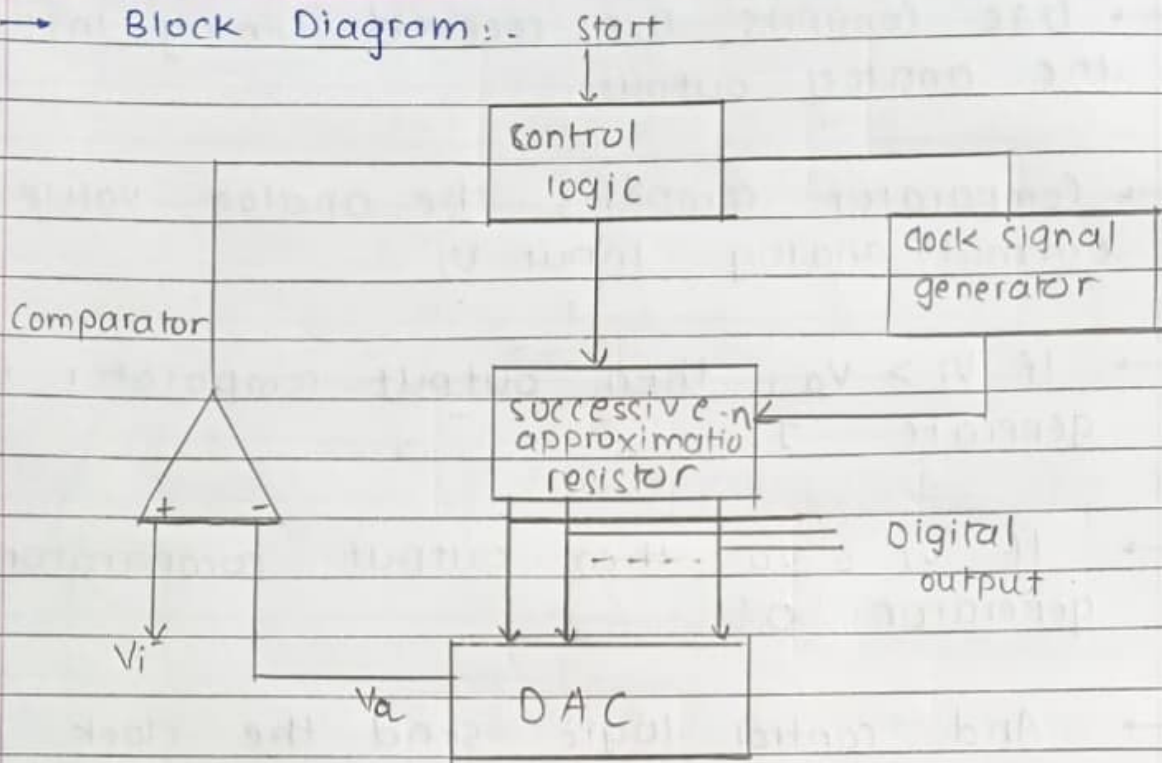 → Block Diagram:-
Start
control
logic
clock signal
generator
Comparator
successive -n
approximatio
resistor
+ -
Digital
output
Vi
Va
DAC